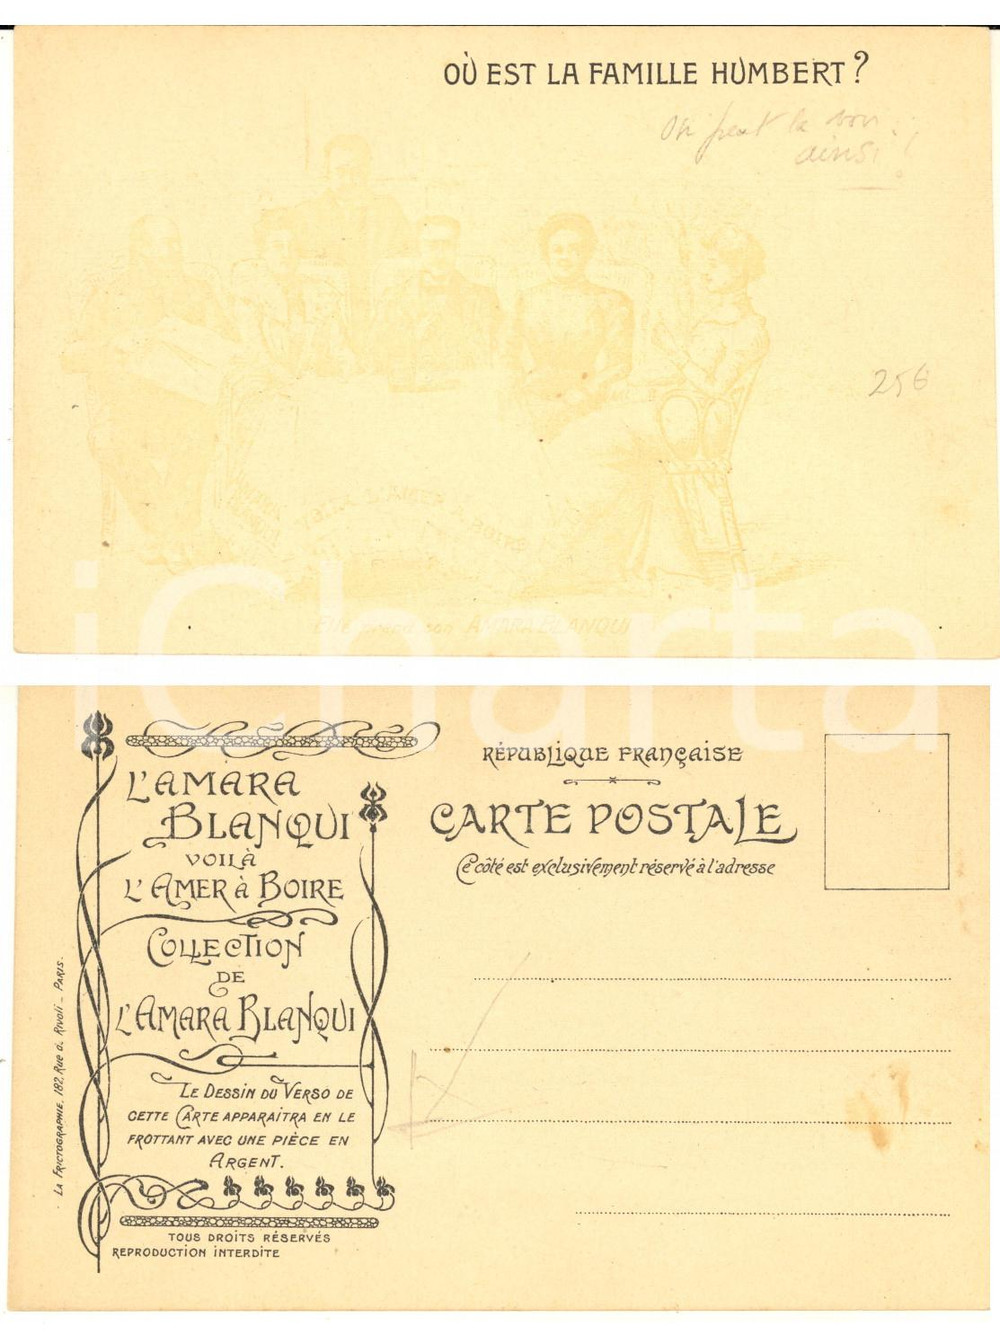 OÙ EST LA FAMILLE HUMBERT ?
On peut la voir
ainsi !
25€
Elle prend son AMARA BLANQUI
iCharta
L'AMARA
BLANQUI
VOILÀ
L'AMER à BOIRE
COLLECTION
DE
L'AMARA BLANQUI
LE DESSIN DU VERSO DE
CETTE CARTE APPARAITRA EN LE
FROTTANT AVEC UNE PIÈCE EN
ARGENT.
TOUS DROITS RÉSERVÉS
REPRODUCTION INTERDITE
LA FRICTOGRAPHIE. 182, Rue d. Rivoli _ PARIS.
RÉPUBLIQUE FRANÇAISE
CARTE POSTALE
Ce côté est exclusivement réservé à l'adresse